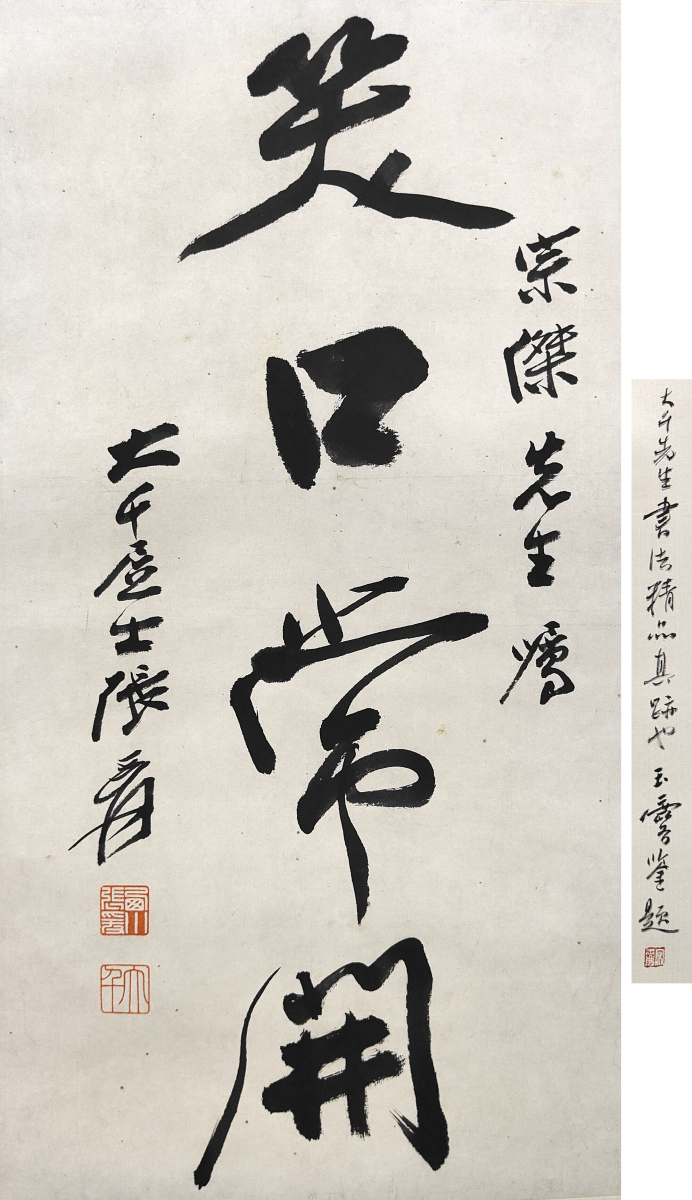 宗傑先生囑
笑口常開
大千居士張爰
張爰
大千
大千先生書法精品真跡也
玉 鑒題